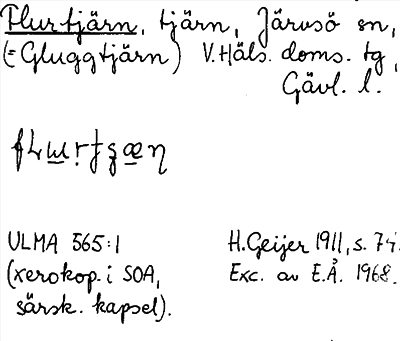 Flurtjärn, tjärn, Järvsö sn,
(= Gluggtjärn) V. Häls. doms. tg,
Gävl. l.
ULMA 565:1
(xerokop. i SOA,
särsk. kapsel).
H. Geijer 1911, s. 74.
Exc. av E.Å. 1968.